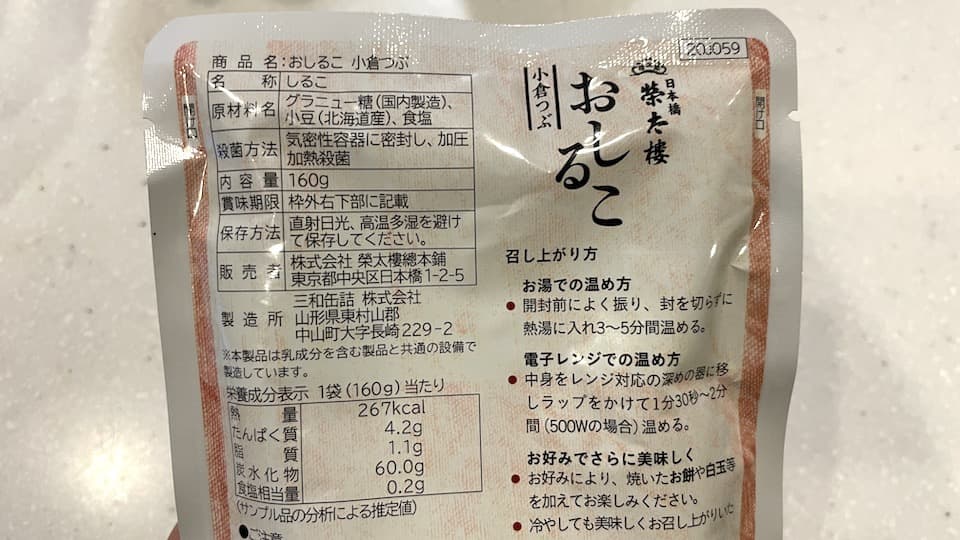 商品名：おしるこ 小倉つぶ
名称 しるこ
原材料名 グラニュー糖(国内製造)、
小豆(北海道産)、食塩
殺菌方法 気密性容器に密封し、加圧
加熱殺菌
内容量 160g
賞味期限 枠外右下部に記載
保存方法 直射日光、高温多湿を避け
て保存してください。
販売者 株式会社 榮太樓總本鋪
東京都中央区日本橋1-2-5
製造所 三和缶詰 株式会社
山形県東村山郡
中山町大字長崎229-2
※本製品は乳成分を含む製品と共通の設備で
製造しています。
栄養成分表示 1袋(160g)当たり
熱量 267kcal
たんぱく質 4.2g
脂質 1.1g
炭水化物 60.0g
食塩相当量 0.2g
(サンプル品の分析による推定値)
●ご注意
開け口
開け口
日本橋
榮太樓
おしるこ
小倉つぶ
召し上がり方
お湯での温め方
●開封前によく振り、封を切らずに
熱湯に入れ3～5分間温める。
電子レンジでの温め方
●中身をレンジ対応の深めの器に移
しラップをかけて1分30秒～2分
間(500Wの場合)温める。
お好みでさらに美味しく
●お好みにより、焼いたお餅や白玉等
を加えてお楽しみください。
●冷やしても美味しくお召し上がりいた